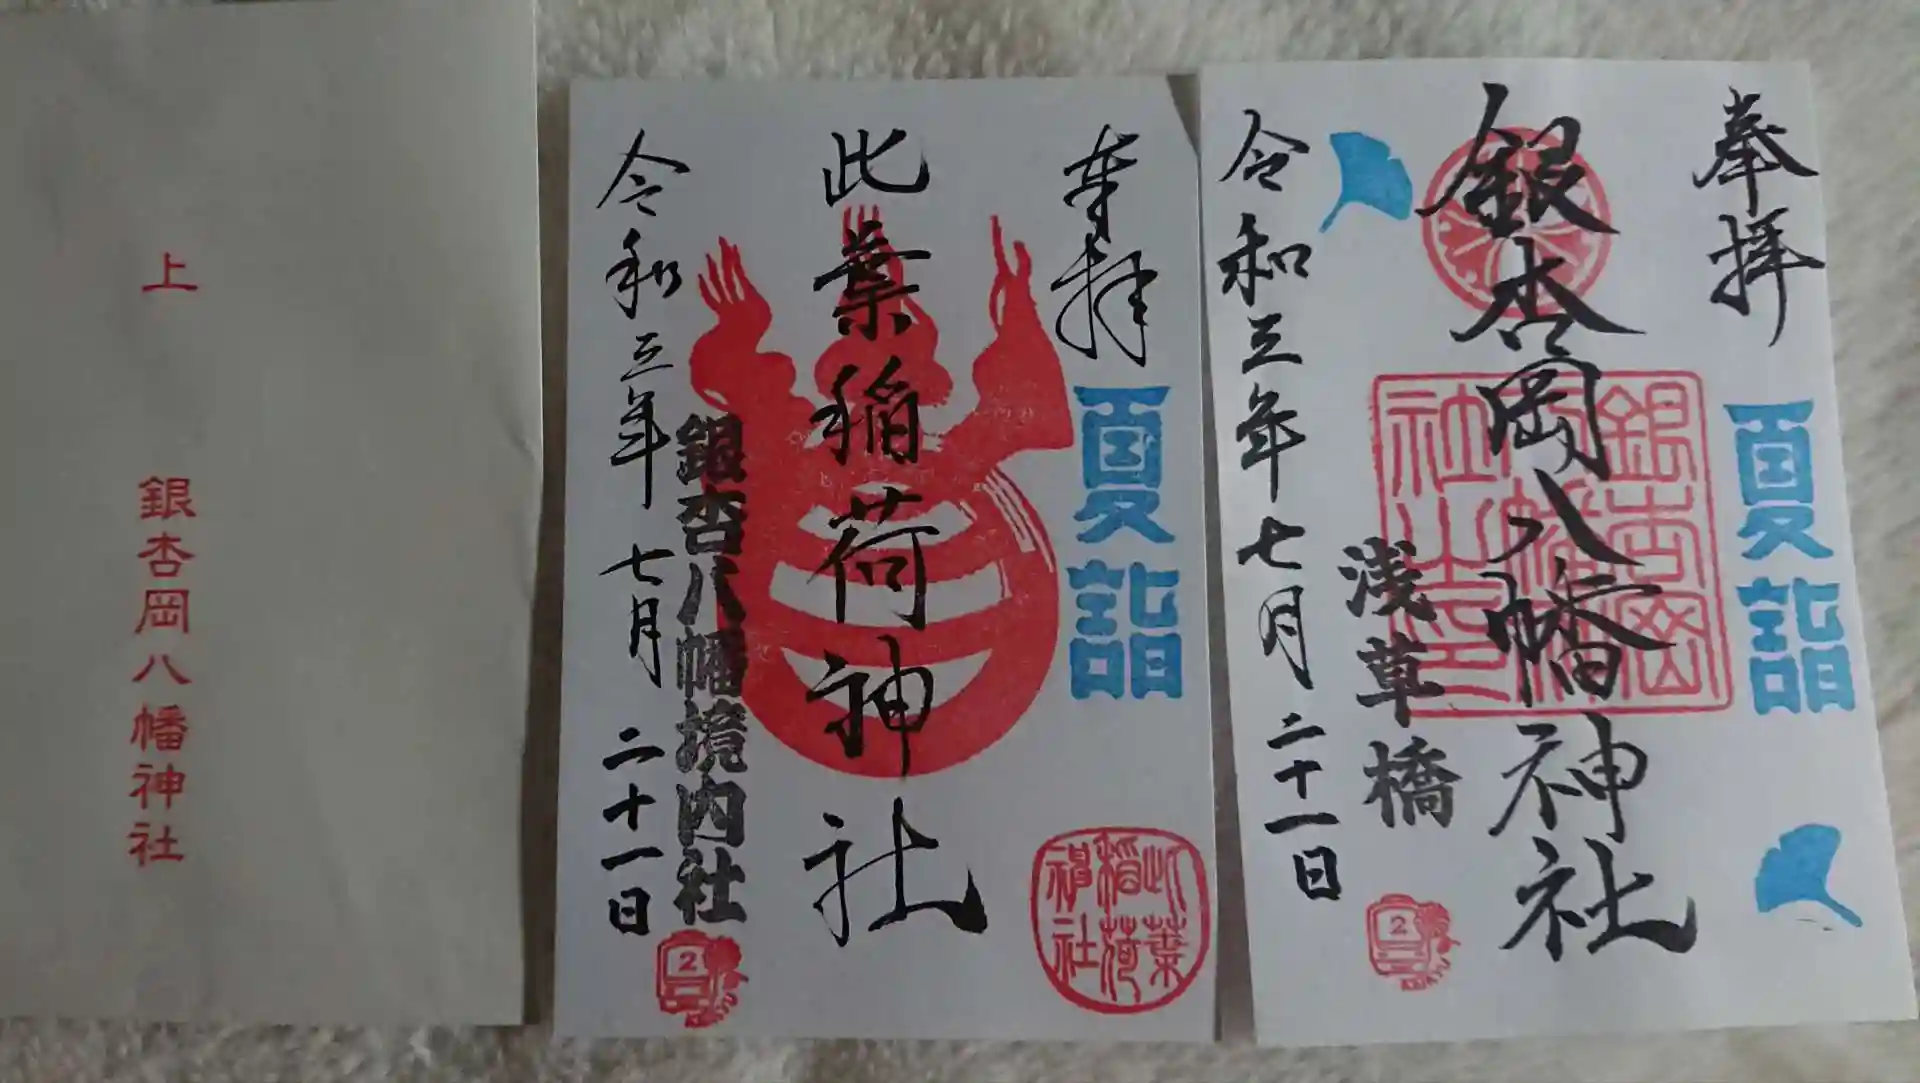 上
銀杏岡八幡神社
奉拝
夏詣
此葉稲荷神社
此葉
稲荷
神社
銀杏八幡境内社
令和三年 七月 二十一日
2
奉拝
夏詣
銀杏岡八幡神社
銀杏岡
八幡神
社之印
浅草橋
令和三年七月 二十一日
2